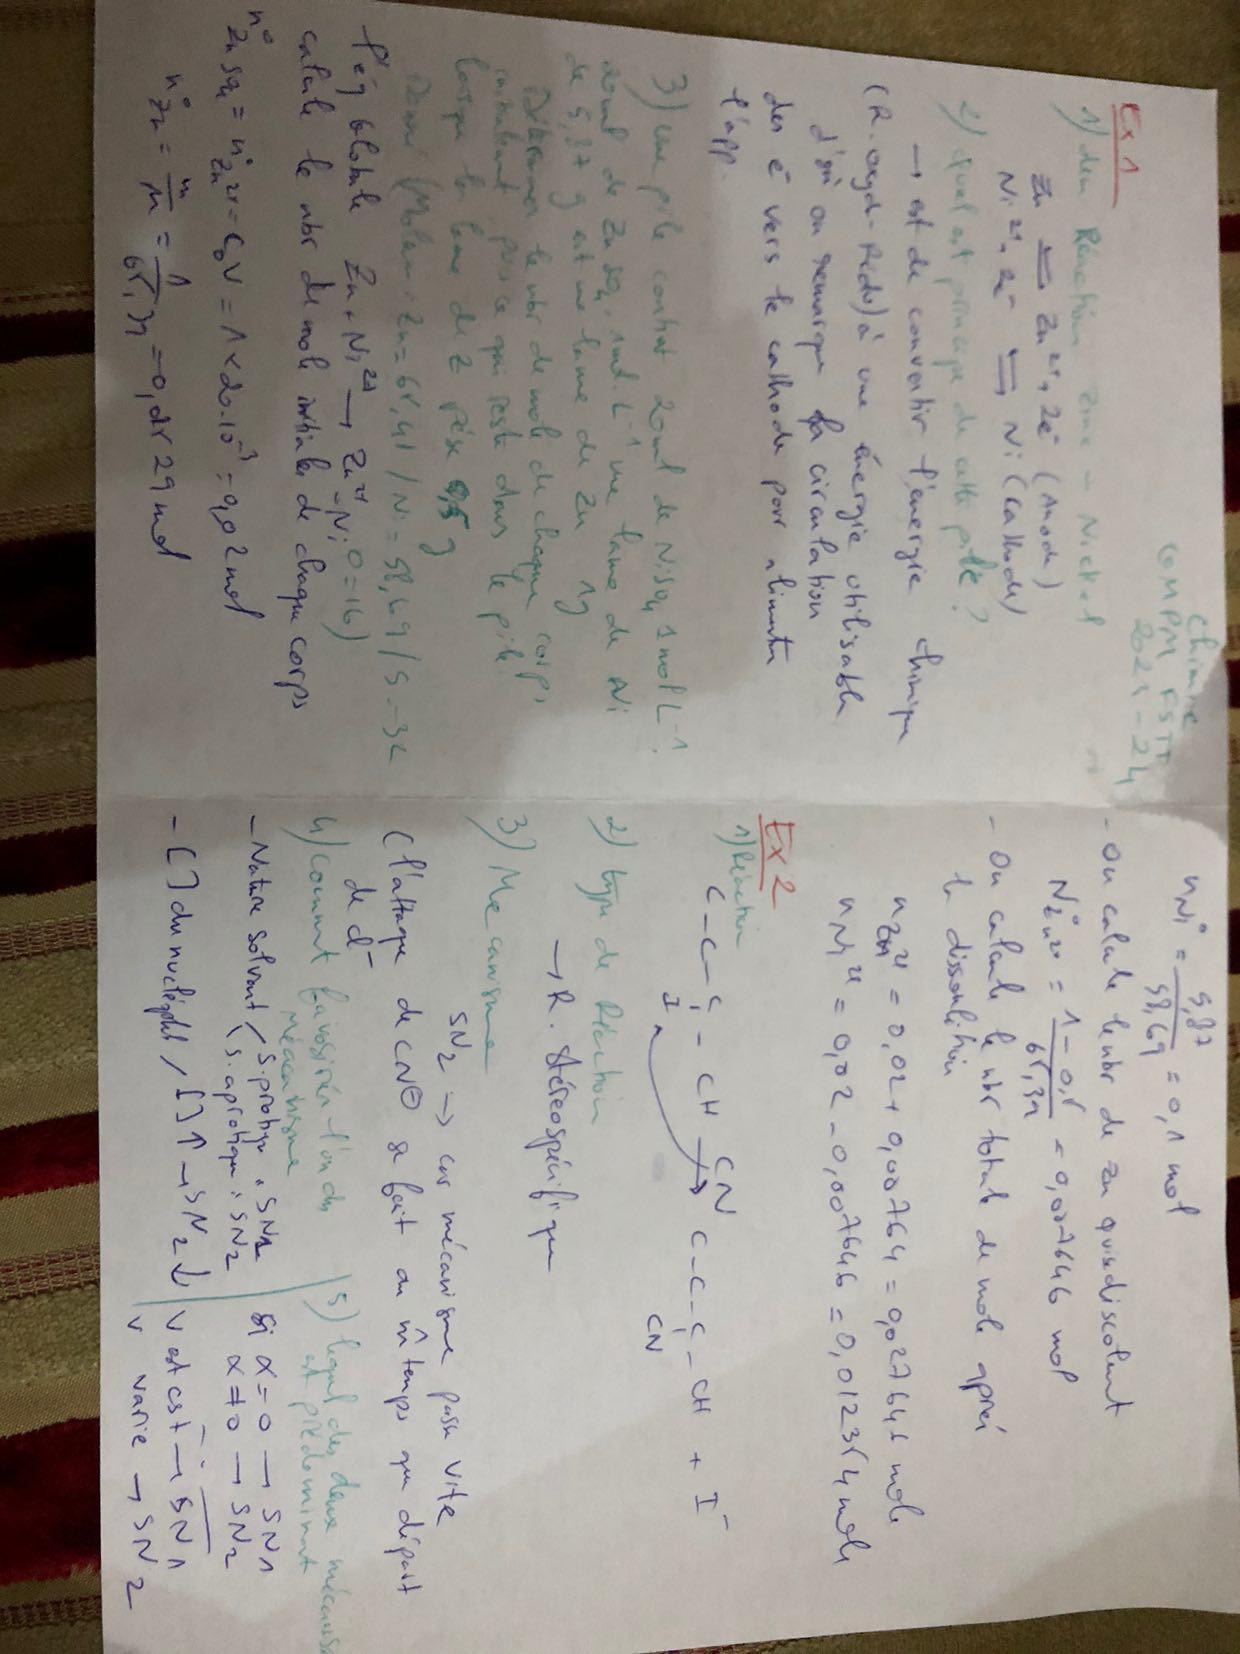 Chimie
COMPM FSTT
2021-24
Ex 1
1) deu Réaction zinc - Nickel
Zn ⇌ Zn²⁺ + 2e⁻ (Anode)
Ni²⁺ + 2e⁻ ⇌ Ni (Cathode)
2) quel est principe de cette pile ?
→ est de convertir l'énergie chimique
(R. oxyd-Redu) à une énergie utilisable
d'où on remarque la circulation
des é vers le cathode pour alimenter
l'app.
3) une pile contient 20ml de NiSO₄ 1mol L⁻¹,
20ml de ZnSO₄ 1mol.L⁻¹ une lame de Ni
de 5,87 g et une lame de Zn 1g
Déterminer le nbr de mole de chaque corps
lorsque la lame de Z pèse 0,5 g
Zn = 65,41 / Ni = 58,69 / S = 32
O=16)
l'éq Globale Zn + Ni²⁺ → Zn²⁺ + Ni
calcule le nbr de mole initiales de chaque corps
n°ZnSO₄ = n°Zn²⁺ = C₀V = 1 × 20.10⁻³ = 0,02 mol
n°Zn = m/M = 1/65,39 = 0,01529 mol
n°Ni = 5,87/58,69 = 0,1 mol
- On calcule le nbr de Zn qui se discolvent
N°Zn²⁺ = 1-0,5/65,39 = 0,007646 mol
- On calcule le nbr total de mole après
la dissolution
nZn²⁺ = 0,02 + 0,00764 = 0,027646 mole
nNi²⁺ = 0,02 - 0,007646 = 0,012354 mole
Ex 2
1) Réaction
C - C - C - CH → C - C - C - CH + I⁻
I CN CN
2) type de Réaction
→ R. Stéréospécifique
3) Mécanisme
SN₂ → car mécanisme passe vite
(l'attaque de CN⊖ se fait au m̂ temps que départ
de d⁻
4) Comment favoriser l'un des
mécanisme
- Nature solvant / S. protique : SN1
S. aprotique : SN₂
- [ ] du nucléophil / [ ] ↑ → SN₂ ↓
5) lequel des deux mécanisme
est prédominant
Si α = 0 → SN1
α ≠ 0 → SN₂
V est cst → SN1
V varie → SN2